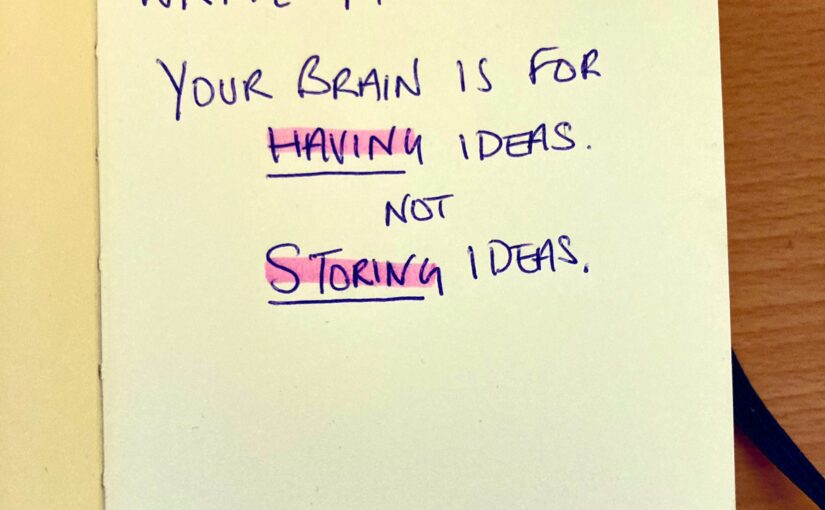 YOUR BRAIN IS FOR
HAVING IDEAS.
NOT
STORING IDEAS.